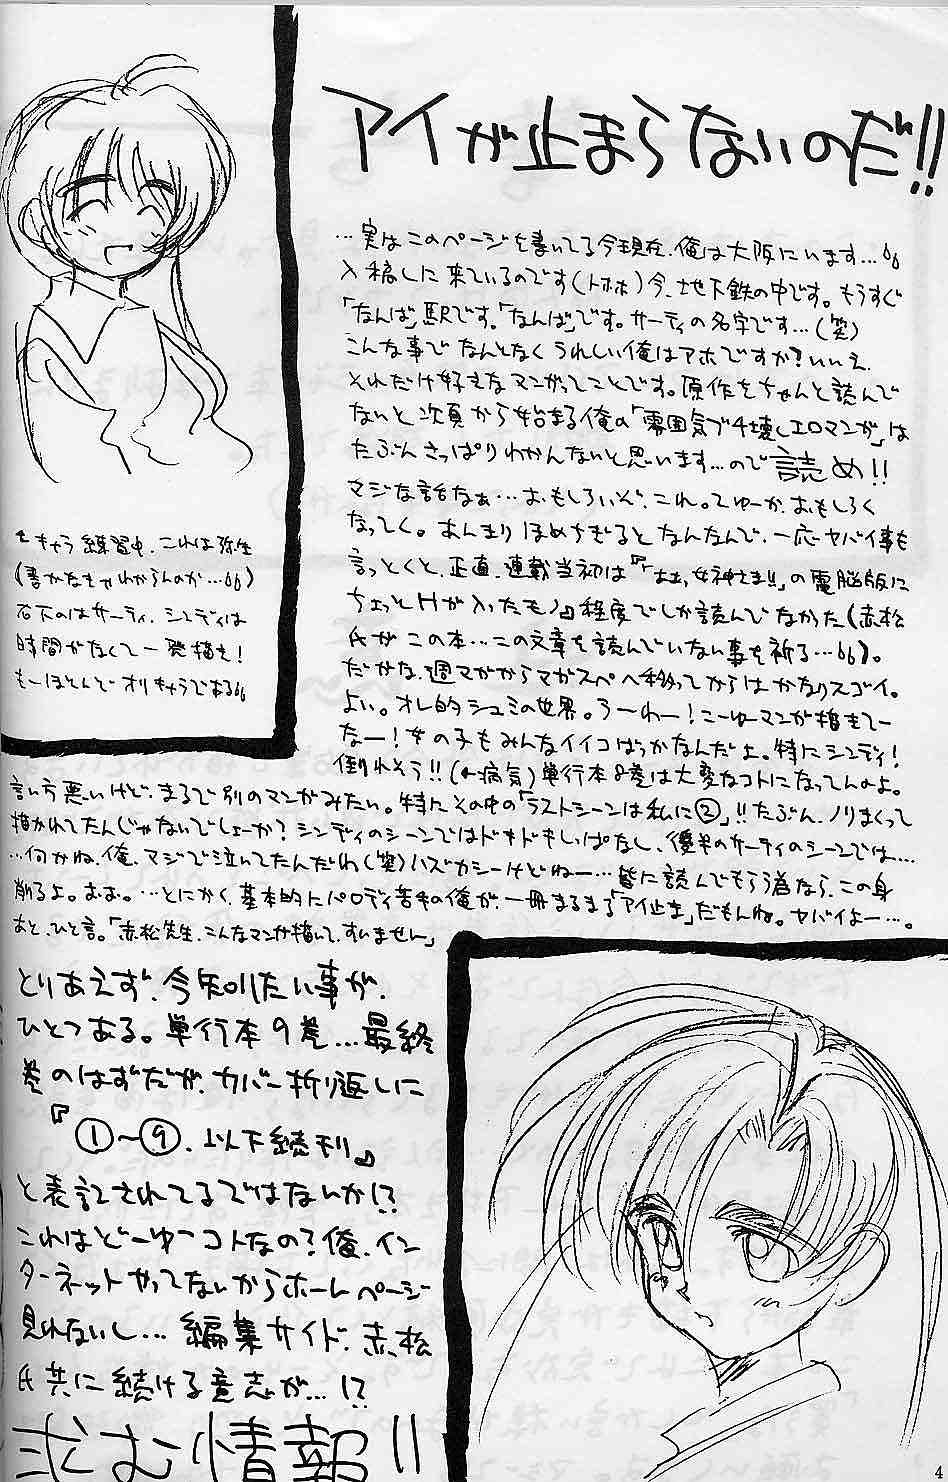 アイが止まらないのだ!!
…実はこのページを書いてる今現在、俺は大阪にいます…。
入稿しに来ているのです(トホホ)今、地下鉄の中です。もうすぐ
「なんば」駅です。「なんば」です。サーティの名字です…(笑)
こんな事でなんとなくうれしい俺はアホですか?いいえ、
それだけ好きなマンガってことです。原作をちゃんと読んで
ないと次頁から始まる俺の「雰囲気ブチ壊しエロマンガ」は
たぶんさっぱりわかんないと思います…ので読め!!
マジな話なぁ…おもしろいぞ、これ。てゆーか、おもしろく
なってく。あんまりほめちぎるとなんなんで、一応ヤバイ事も
言っとくと、正直、連載当初は『「ああっ女神さまっ」の電脳版に
ちょっとHが入ったモノ』程度でしか読んでなかった(赤松
氏がこの本…この文章を読んでいない事を祈る…)。
だがな、週マガからマガスペへ移ってからはかなりスゴイ。
よい。オレ的シュミの世界。うーわー!こーゆーマンガ描きてー
なー!女の子もみんなイイコばっかなんだよ。特にシンディ!
倒れそう!!(←病気)単行本8巻は大変なコトになってんのよ。
言い方悪いけど、まるで別のマンガみたい。特にその中の「ラストシーンは私に②」!!たぶん、ノリまくって
描かれてたんじゃないでしょーか?シンディのシーンではドキドキしっぱなし、後半のサーティのシーンでは…
…何かね、俺、マジで泣いてたんだわ(笑)ハズカシーけどねー…皆に読んでもらう為なら、この身
削るよ。おお。…とにかく、基本的にパロディ苦手の俺が、一冊まるまる「アイ止ま」だもんね。ヤバイよー…。
あと、ひと言。「赤松先生、こんなマンガ描いて、すいません」
←キャラ練習中、これは弥生
(書かなきゃわからんのか…)
右下のはサーティ、シンディは
時間がなくて一発描き!
もーほとんどオリキャラである
とりあえず、今知りたい事が、
ひとつある。単行本9巻…最終
巻のはずだが、カバー折り返しに
『①〜⑨、以下続刊』
と表記されてるではないか!?
これはどーゆーコトなの?俺、イン
ターネットやってないからホームページ
見れないし…編集サイド、赤松
氏共に続ける意志が…!?
求む情報!!
4